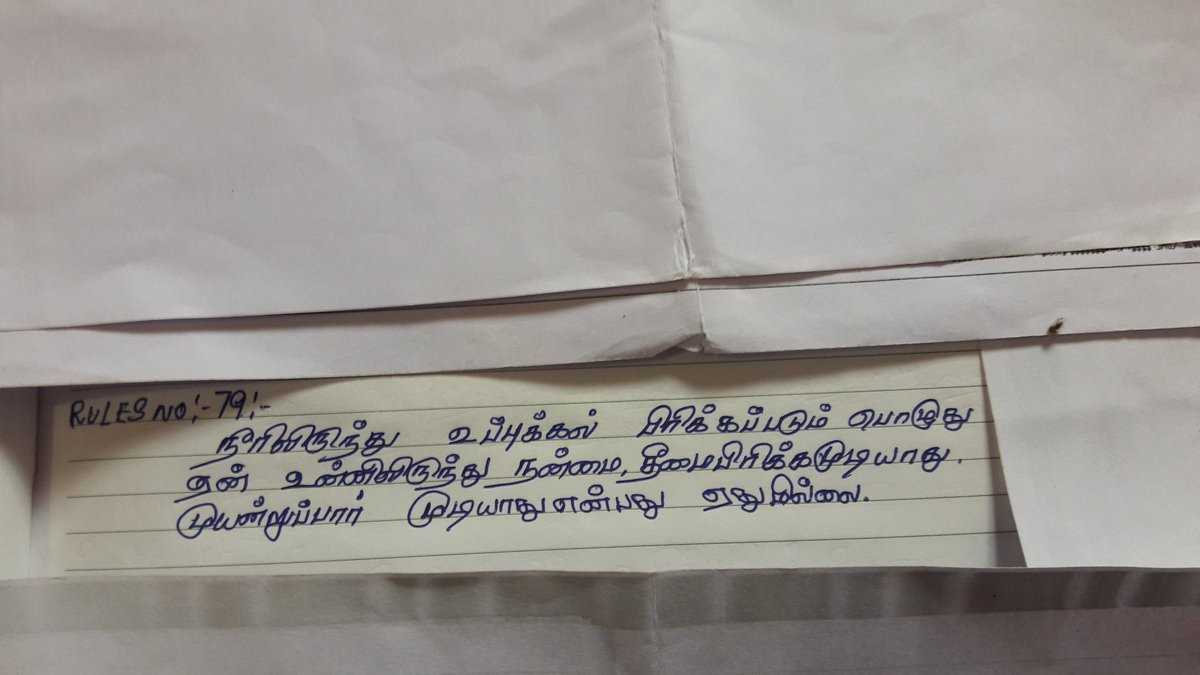 RULES NO:-79:-
நீரிலிருந்து உப்புக்கல் பிரிக்கப்படும் பொழுது
ஏன் உன்னிலிருந்து நன்மை, தீமைபிரிக்கமுடியாது.
முயன்றுப்பார் முடியாது என்பது ஏதுமில்லை.